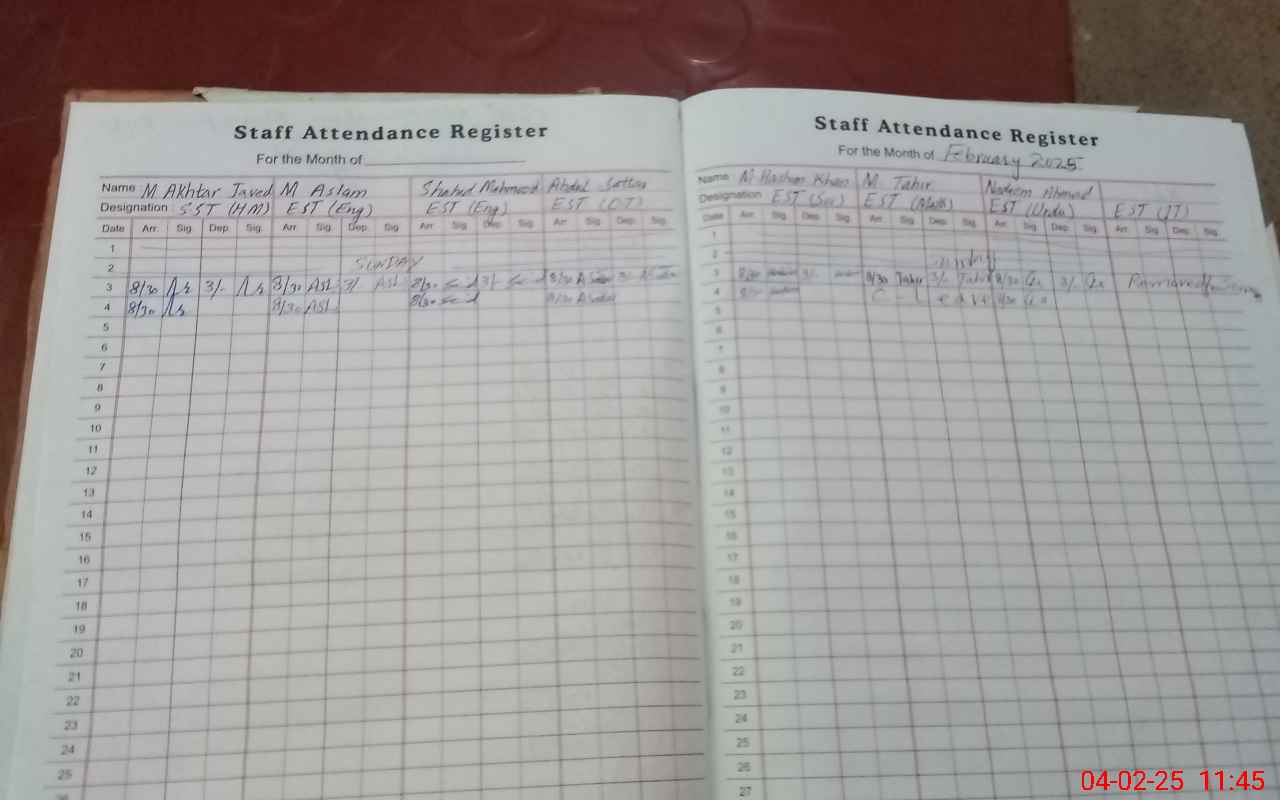 Staff Attendance Register
For the Month of
Name M Akhtar Javed M Aslam Shahid Mehmood Abdul Sattar
Designation SST (HM) EST (Eng) EST (Eng) EST (DT)
Date Arr. Sig. Dep. Sig. Arr. Sig. Dep. Sig. Arr. Sig. Dep. Sig. Arr. Sig. Dep. Sig.
1
2 SUNDAY
3 8/30 3/- 8/30 Asl 3/- Asl 8/30 3/- 8/30 3/-
4 8/30 8/30 Asl 8/30 8/30
5
6
7
8
9
10
11
12
13
14
15
16
17
18
19
20
21
22
23
24
25
Staff Attendance Register
For the Month of February 2025
Name M Hashim Khan M. Tahir Nadeem Ahmad
Designation EST (Sci) EST (Math) EST (Urdu) EST (IT)
Date Arr. Sig. Dep. Sig. Arr. Sig. Dep. Sig. Arr. Sig. Dep. Sig. Arr. Sig. Dep. Sig.
1
2
3 8/30 3/- 8/30 Tahir 3/- Tahir 8/30 3/-
4 8/30 C - Leave 8/30
5
6
7
8
9
10
11
12
13
14
15
16
17
18
19
20
21
22
23
24
25
26
27
04-02-25 11:45